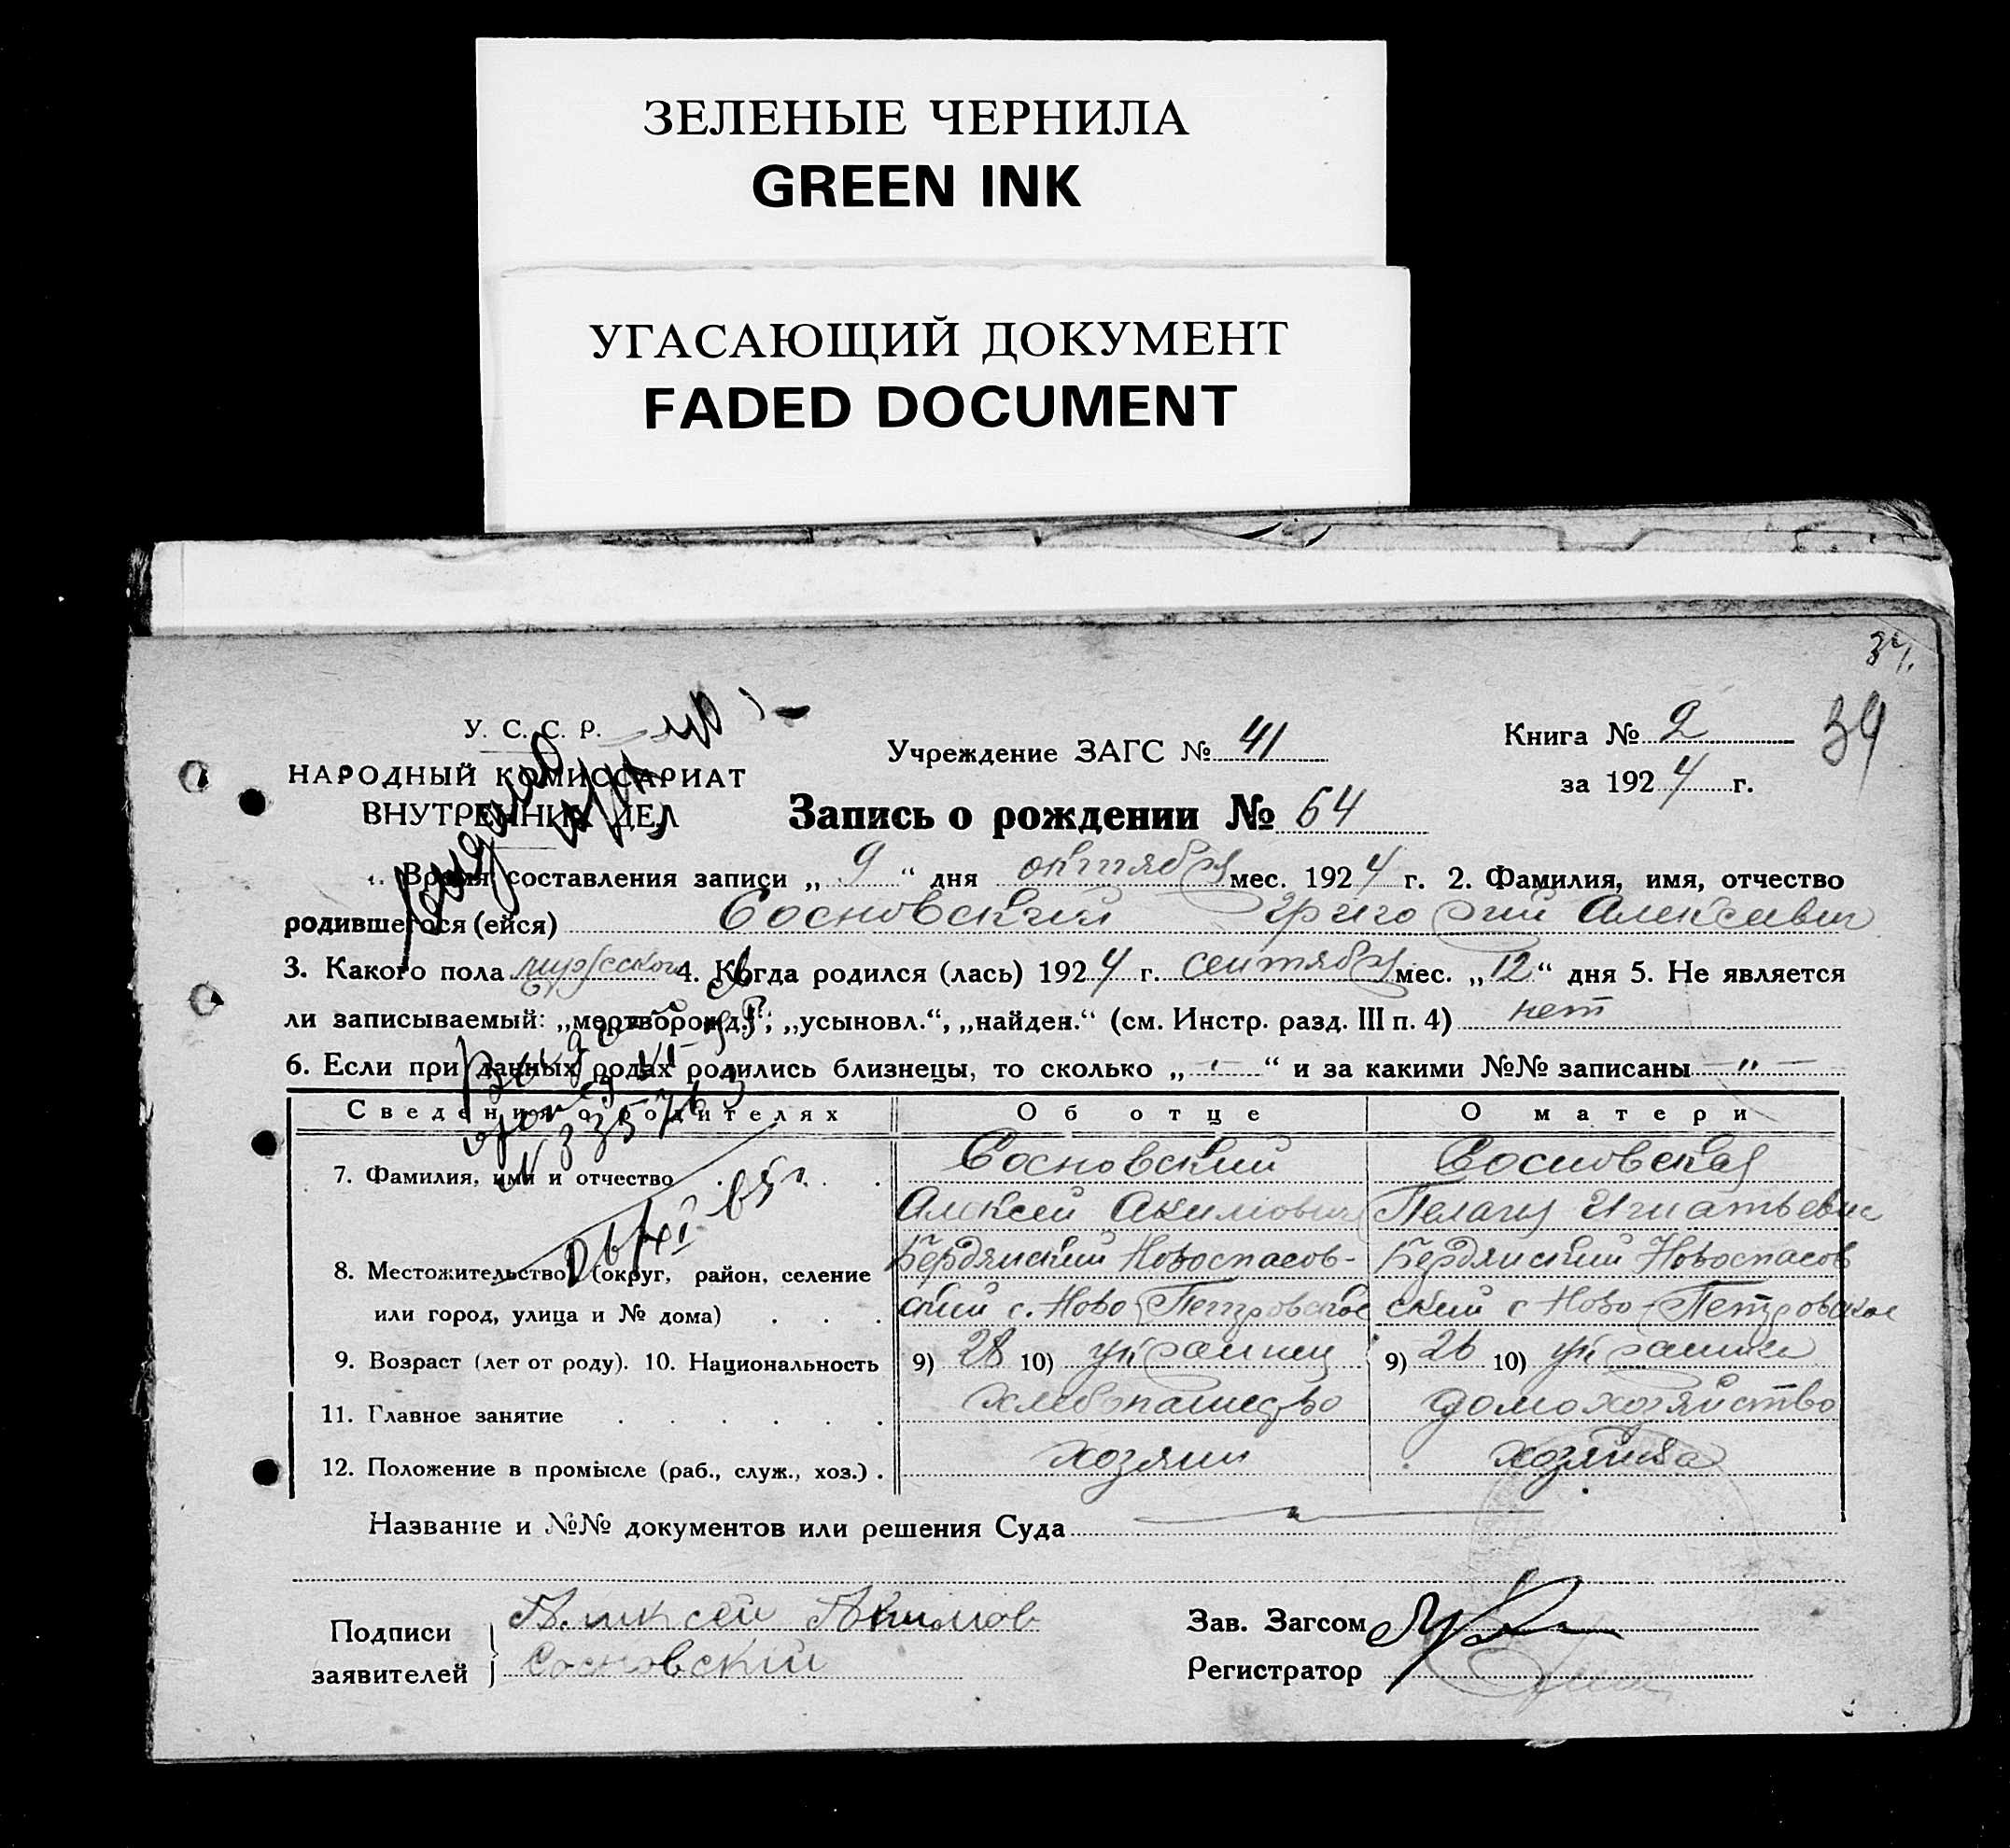 ЗЕЛЕНЫЕ ЧЕРНИЛА
GREEN INK
УГАСАЮЩИЙ ДОКУМЕНТ
FADED DOCUMENT
34.
34
У. С. С. Р.
НАРОДНЫЙ КОМИССАРИАТ
ВНУТРЕННИХ ДЕЛ
Учреждение ЗАГС № 41
Книга № 2
за 1924 г.
Запись о рождении № 64
Время составления записи „ 9 “ дня октября мес. 1924 г. 2. Фамилия, имя, отчество
родившегося (ейся) Сосновский Григорий Алексевич
3. Какого пола мужеского 4. Когда родился (лась) 1924 г. сентября мес. „12“ дня 5. Не является
ли записываемый: „мертворожд.“, „усыновл.“, „найден.“ (см. Инстр. разд. III п. 4) нет
6. Если при данных родах родились близнецы, то сколько „ – “ и за какими №№ записаны – " –
Сведения о родителях Об отце О матери
7. Фамилия, имя и отчество Сосновский Сосновская
Алексей Акимович Пелагия Игнатьевн
8. Местожительство (округ, район, селение Бердянский Новоспасов- Бердянский Новоспасов
или город, улица и № дома) ский с. Ново-Петровское ский с Ново-Петровское
9. Возраст (лет от роду). 10. Национальность 9) 28 10) украинец 9) 26 10)
11. Главное занятие хлебопашество домохозяйство
12. Положение в промысле (раб., служ., хоз.) хозяин хозяйка
Название и №№ документов или решения Суда
Подписи заявителей Алексей Акимов
Сосновский
Зав. Загсом
Регистратор